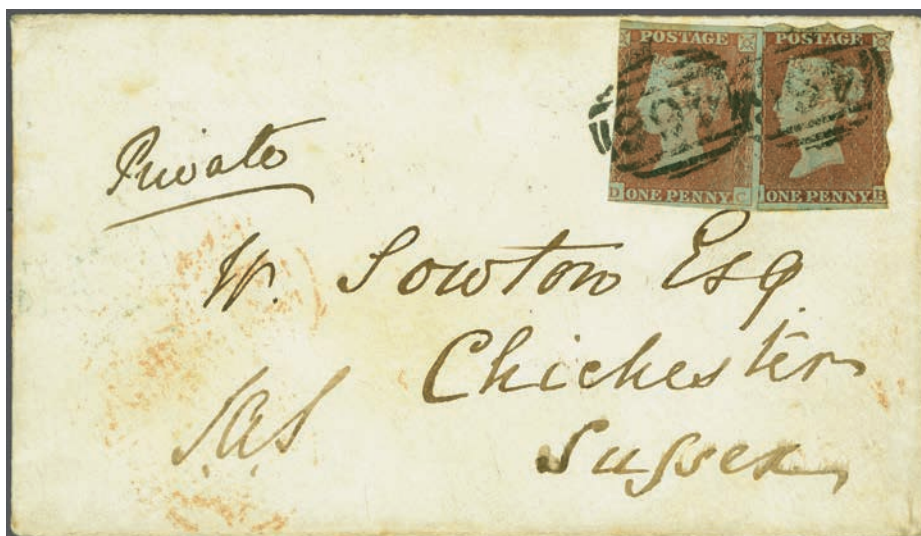 POSTAGE POSTAGE
D ONE PENNY C ONE PENNY B
Private
W. Sowton Esq
Chichester
Sussex